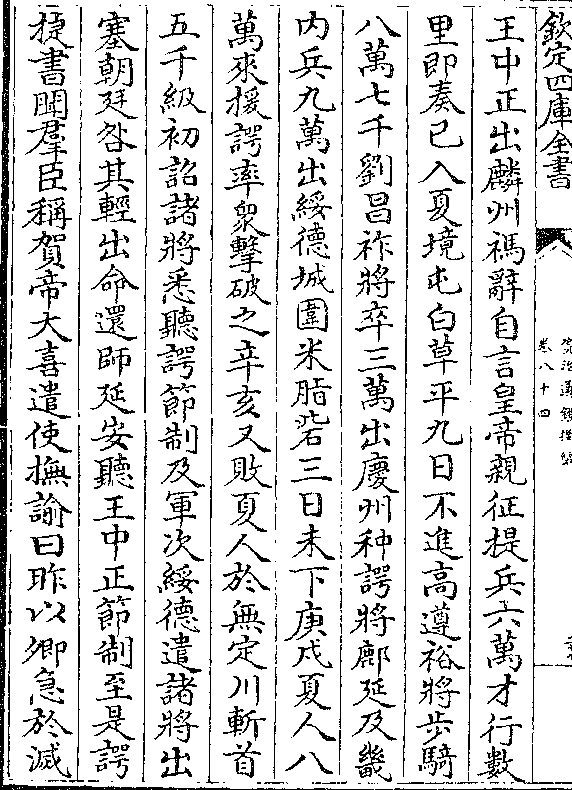 欽定四庫全書
資治通鑑後編
卷八十四
王中正出麟州禡辭自言皇帝親征提兵六萬才行數
里即奏已入夏境屯白草平九日不進高遵裕將步騎
八萬七千劉昌祚將卒三萬出慶州种諤將鄜延及畿
内兵九萬出綏德城圍米脂砦三日未下庚戍夏人八
萬來援諤率衆擊破之辛亥又敗夏人於無定川斬首
五千級初詔諸將悉聽諤節制及軍次綏德遣諸將出
塞朝廷咎其輕出命還師延安聽王中正節制至是諤
捷書聞羣臣稱賀帝大喜遣使撫諭曰昨以卿急於滅